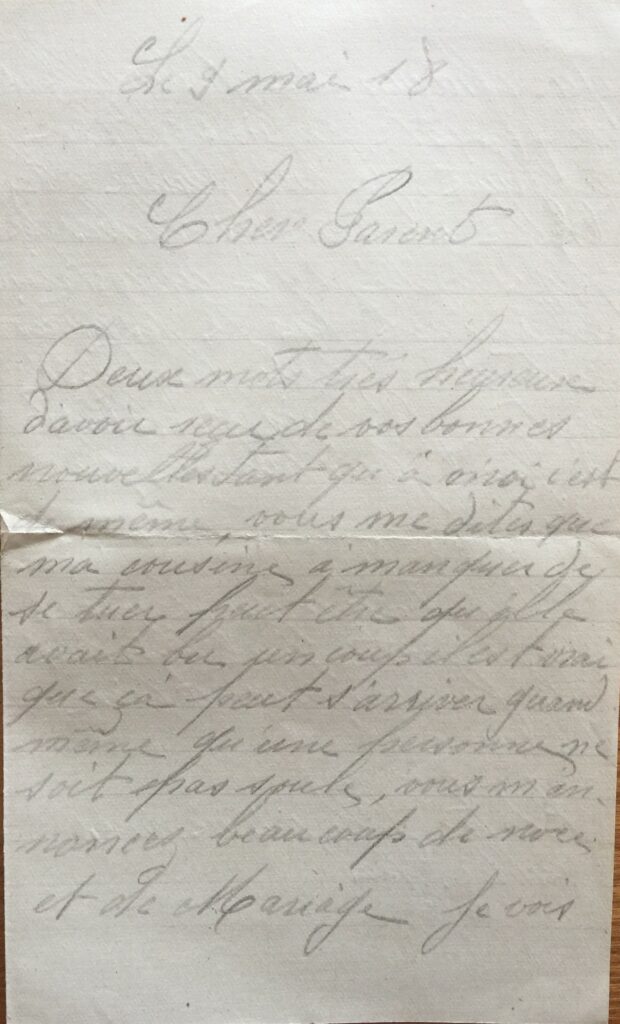 Le 9 mai 18
Cher Parent
Deux mots très heureux
d'avoir reçu de vos bonnes
nouvelles tant qu'à moi c'est
de même, vous me dites que
ma cousine à manquer de
se tuer peut être qu'elle
avait bu un coup il est vrai
que çà peut s'arriver quand
même qu'une personne ne
soit pas soule, vous m'an-
noncez beaucoup de noce
et de Mariage je vois